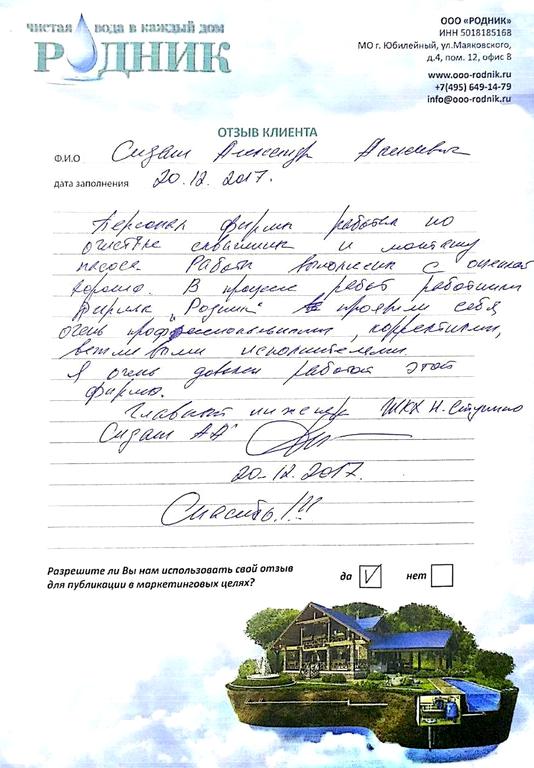 чистая вода в каждый дом
РОДНИК
ООО «РОДНИК»
ИНН 5018185168
МО г. Юбилейный, ул.Маяковского,
д.4, пом. 12, офис 8
www.ooo-rodnik.ru
+7(495) 649-14-79
info@ooo-rodnik.ru
ОТЗЫВ КЛИЕНТА
Ф.И.О Сизаш Александр
дата заполнения 20.12.2017.
Персонал фирмы работал по
очистке скважины и монтажу
насоса Работы выполнены с оценкой
хорошо. В процессе работ работники
фирмы „Родник" проявили себя
очень профессиональными, корректными,
вежливыми исполнителями.
Я очень доволен работой этой
фирмы.
Главный инженер ЖКХ Н. Ступино
Сизаш АА
20-12.2017.
Спасибо!!!
Разрешите ли Вы нам использовать свой отзыв
для публикации в маркетинговых целях?
да V нет